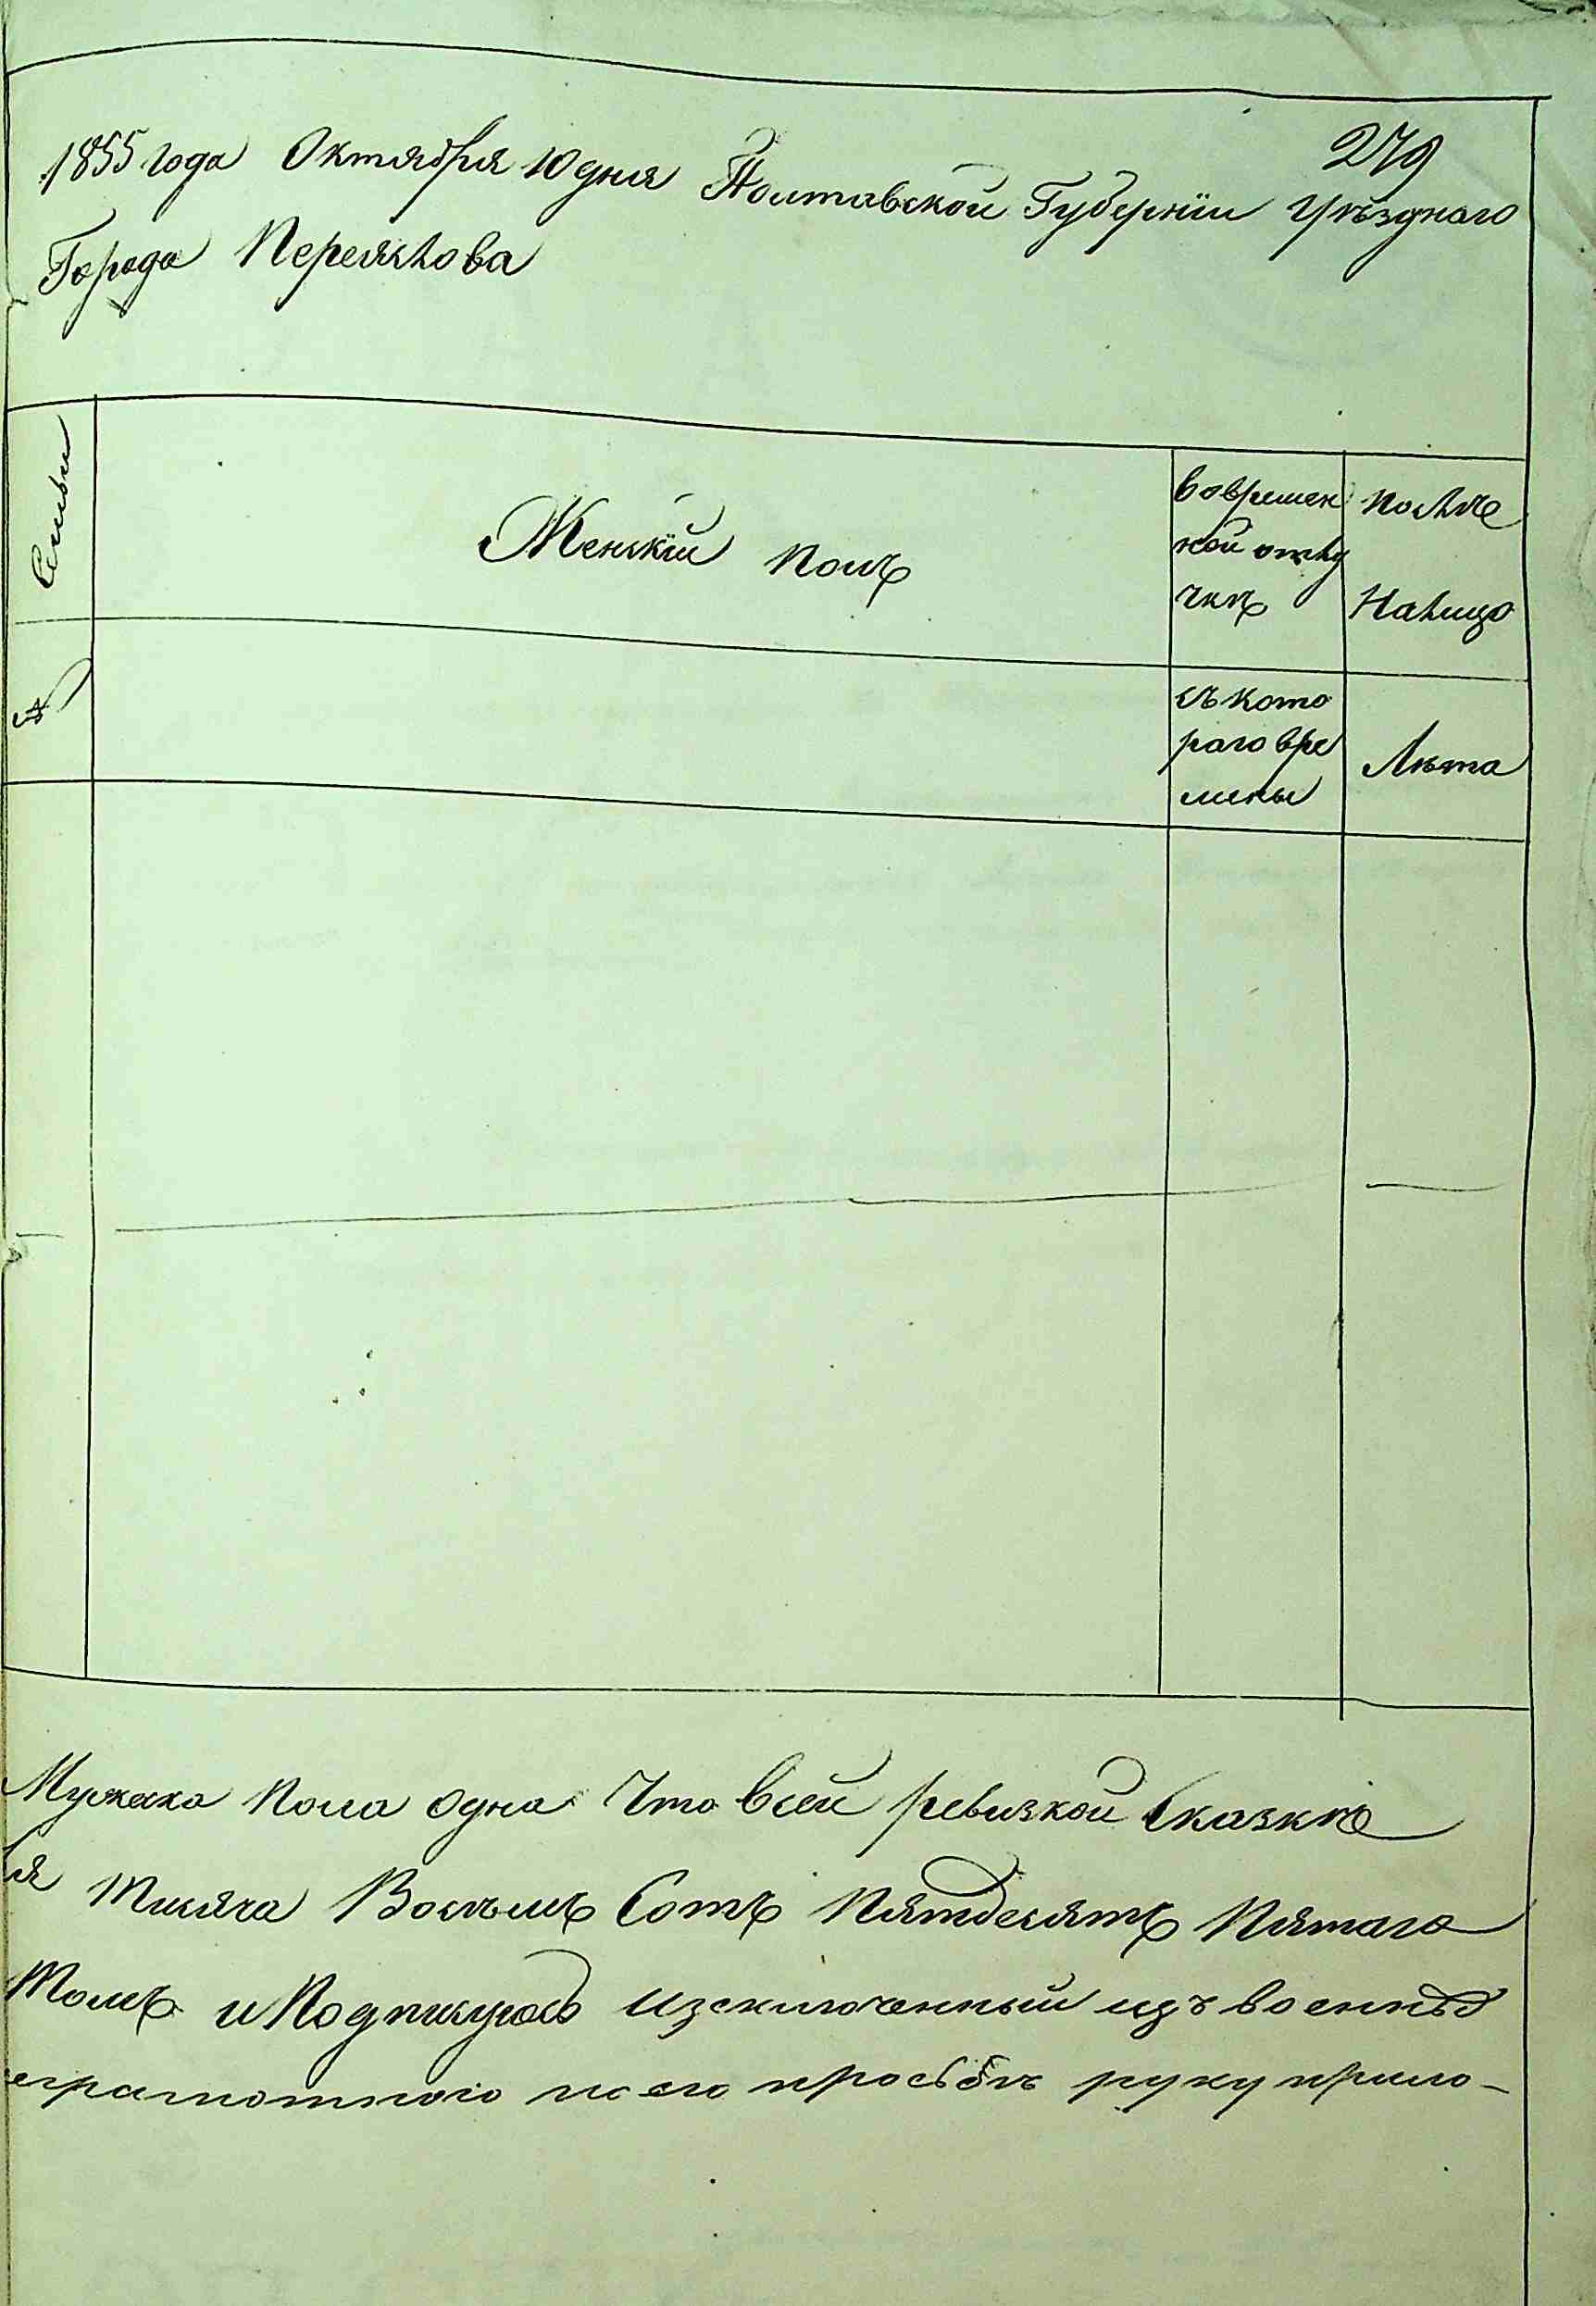 279
1855 года Октября 10 дня Полтавской Губерніи Уѣзднаго
Города Переяслова
Семьи
Женскій полъ
вовремен
ной отлу
чкѣ
После
На лицо
№
съ кото
раго вре
мены
Лѣта
Мужска пола одна Что всей ревизкой Сказкѣ
ся тисяча Восъмъ Сотъ Пятдесятъ Пятаго
томъ и Подпишуюсь изсключенный изъ военныхъ
еграмотного по его просьбѣ руку прило-